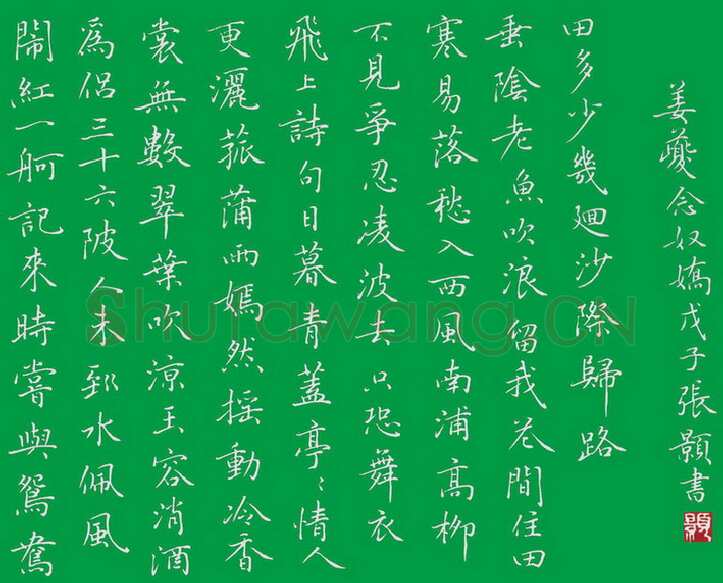 鬧紅一舸記來時嘗與鴛鴦
爲侶三十六陂人未到水佩風
裳無數翠葉吹涼玉容消酒
更灑菰蒲雨嫣然摇動冷香
飛上詩句日暮青蓋亭〻情人
不見爭忍凌波去只恐舞衣
寒易落愁入西風南浦高柳
垂陰老魚吹浪留我花間住田
田多少幾迴沙際歸路
姜夔念奴嬌戊子張顥書
顥
Shufawang.CN